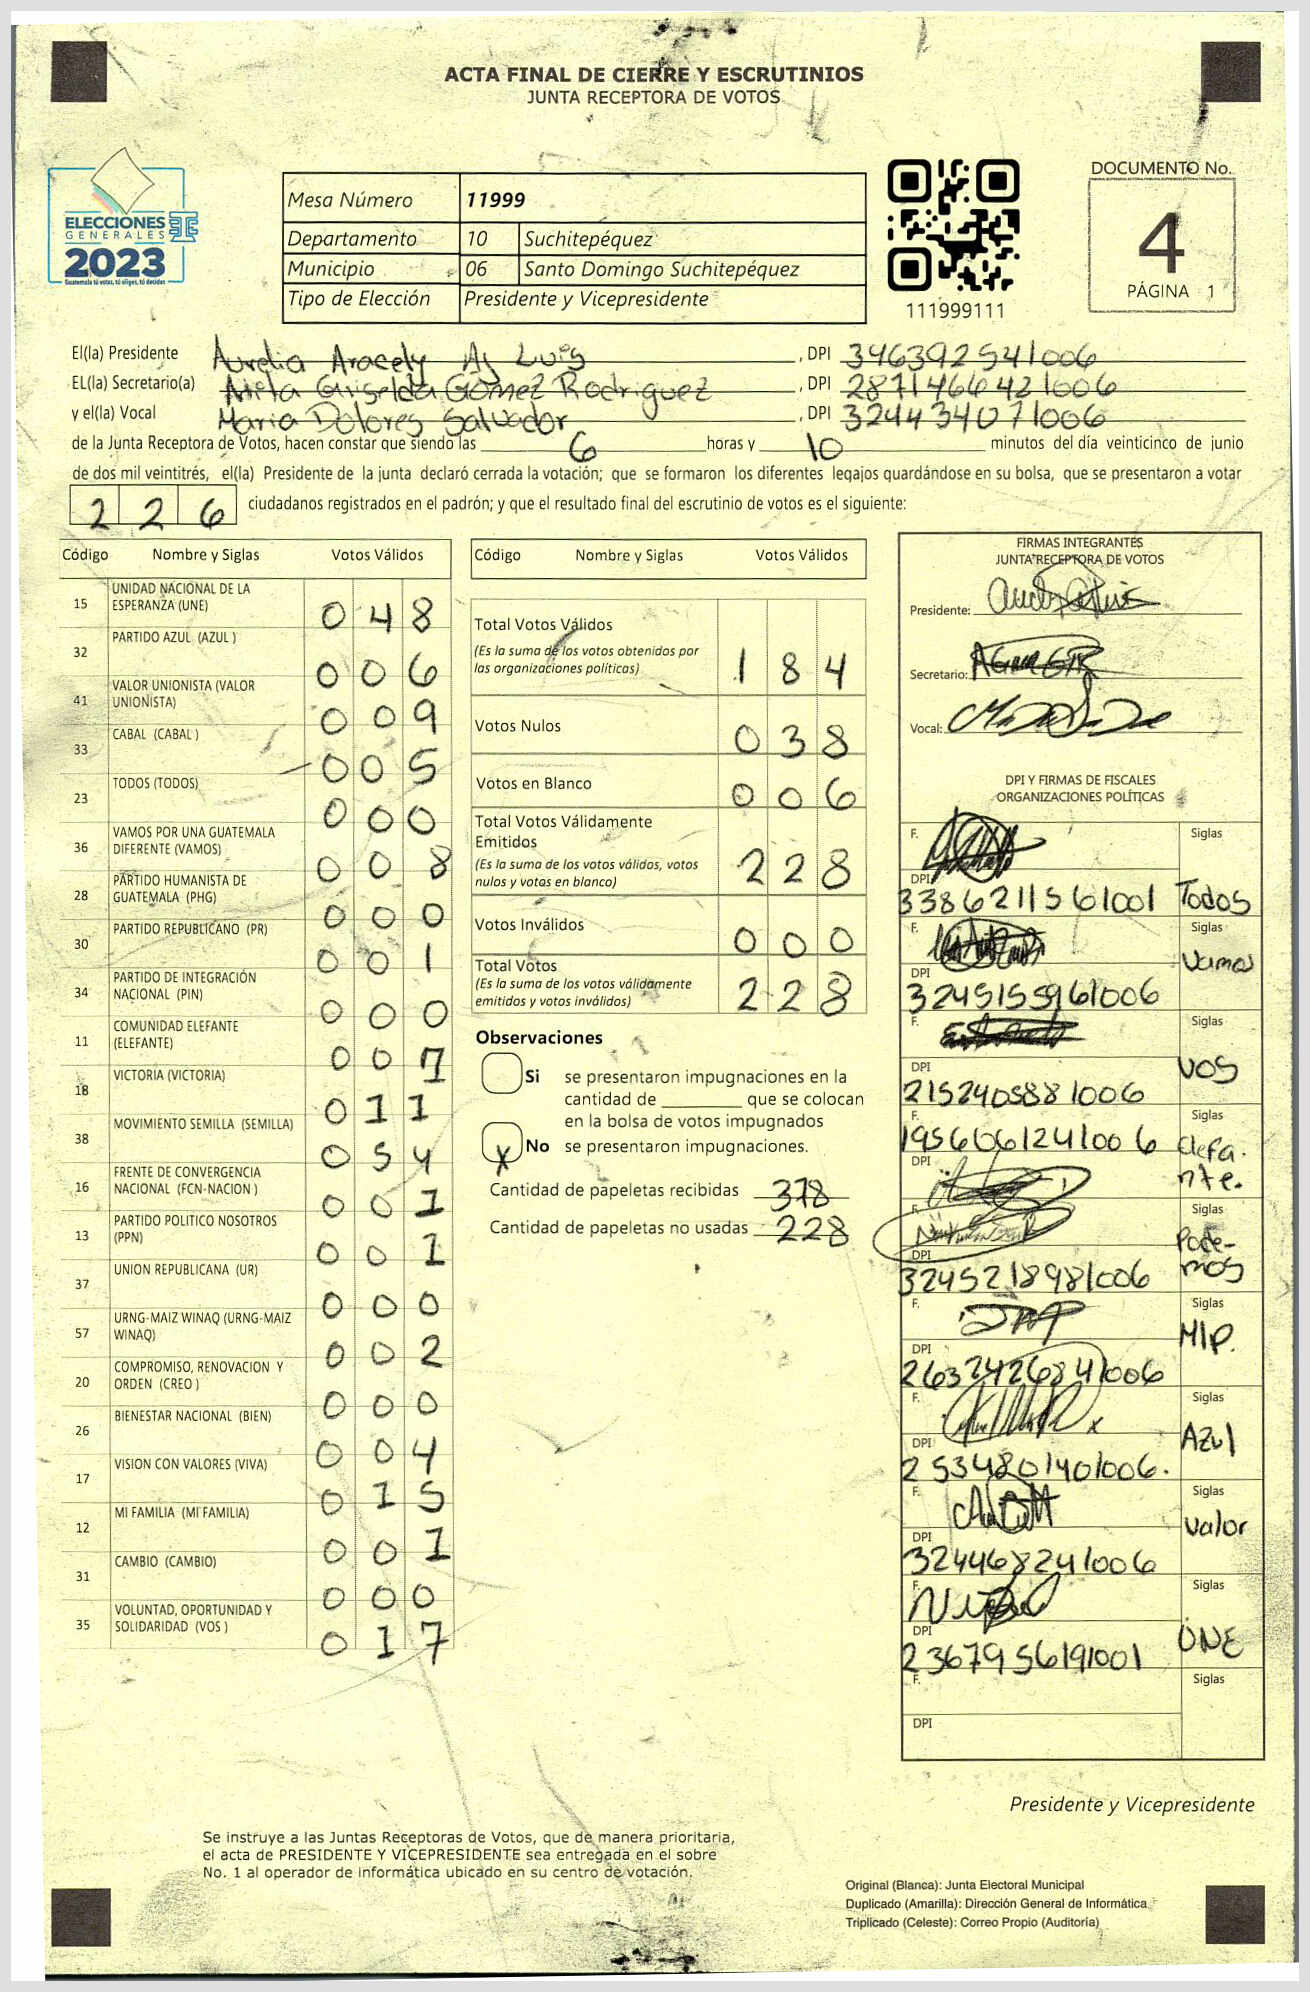 ACTA FINAL DE CIERRE Y ESCRUTINIOS
JUNTA RECEPTORA DE VOTOS
ELECCIONES
GENERALES
2023
Guatemala tú votas, tú eliges, tú decides
Mesa Número 11999
Departamento 10 Suchitepéquez
Municipio 06 Santo Domingo Suchitepéquez
Tipo de Elección Presidente y Vicepresidente
111999111
DOCUMENTO No.
4
PÁGINA 1
El(la) Presidente Aurelia Aracely Aj Luis , DPI 346392541006
EL(la) Secretario(a) Griselda Gómez Rodriguez , DPI 2871466421006
y el(la) Vocal Maria Dolores Salvador , DPI 324434071006
de la Junta Receptora de Votos, hacen constar que siendo las 6 horas y 10 minutos del día veinticinco de junio
de dos mil veintitrés, el(la) Presidente de la junta declaró cerrada la votación; que se formaron los diferentes legajos guardándose en su bolsa, que se presentaron a votar
226 ciudadanos registrados en el padrón; y que el resultado final del escrutinio de votos es el siguiente:
Código Nombre y Siglas Votos Válidos
15 UNIDAD NACIONAL DE LA ESPERANZA (UNE) 048
32 PARTIDO AZUL (AZUL ) 006
41 VALOR UNIONISTA (VALOR UNIONISTA) 009
33 CABAL (CABAL ) 005
23 TODOS (TODOS) 000
36 VAMOS POR UNA GUATEMALA DIFERENTE (VAMOS) 008
28 PARTIDO HUMANISTA DE GUATEMALA (PHG) 000
30 PARTIDO REPUBLICANO (PR) 001
34 PARTIDO DE INTEGRACIÓN NACIONAL (PIN) 000
11 COMUNIDAD ELEFANTE (ELEFANTE) 001
18 VICTORIA (VICTORIA) 011
38 MOVIMIENTO SEMILLA (SEMILLA) 054
16 FRENTE DE CONVERGENCIA NACIONAL (FCN-NACION ) 001
13 PARTIDO POLITICO NOSOTROS (PPN) 001
37 UNION REPUBLICANA (UR) 000
57 URNG-MAIZ WINAQ (URNG-MAIZ WINAQ) 002
20 COMPROMISO, RENOVACION Y ORDEN (CREO ) 000
26 BIENESTAR NACIONAL (BIEN) 004
17 VISION CON VALORES (VIVA) 015
12 MI FAMILIA (MI FAMILIA) 001
31 CAMBIO (CAMBIO) 000
35 VOLUNTAD, OPORTUNIDAD Y SOLIDARIDAD (VOS ) 017
Código Nombre y Siglas Votos Válidos
Total Votos Válidos 184
(Es la suma de los votos obtenidos por
las organizaciones políticas)
Votos Nulos 038
Votos en Blanco 006
Total Votos Válidamente
Emitidos 228
(Es la suma de los votos válidos, votos
nulos y votos en blanco)
Votos Inválidos 000
Total Votos 228
(Es la suma de los votos válidamente
emitidos y votos inválidos)
Observaciones
Si se presentaron impugnaciones en la
cantidad de ________ que se colocan
en la bolsa de votos impugnados
X No se presentaron impugnaciones.
Cantidad de papeletas recibidas 378
Cantidad de papeletas no usadas 228
FIRMAS INTEGRANTES
JUNTA RECEPTORA DE VOTOS
Presidente:
Secretario:
Vocal:
DPI Y FIRMAS DE FISCALES
ORGANIZACIONES POLÍTICAS
F. Siglas
DPI 3386211561001 Todos
F. Siglas
DPI 3245155961006 Vamos
F. Siglas
DPI 2152405881006 VOS
F. Siglas
1956061241006 Elefa-
DPI nte.
F. Siglas
DPI 3245218981006 Pode-
mos
F. Siglas
DPI 2632426841006 MLP.
F. Siglas
DPI 2534801401006. Azul
F. Siglas
DPI 324468241006 Valor
F. Siglas
DPI 2367956191001 UNE
F. Siglas
DPI
Presidente y Vicepresidente
Se instruye a las Juntas Receptoras de Votos, que de manera prioritaria,
el acta de PRESIDENTE Y VICEPRESIDENTE sea entregada en el sobre
No. 1 al operador de informática ubicado en su centro de votación.
Original (Blanca): Junta Electoral Municipal
Duplicado (Amarilla): Dirección General de Informática
Triplicado (Celeste): Correo Propio (Auditoría)